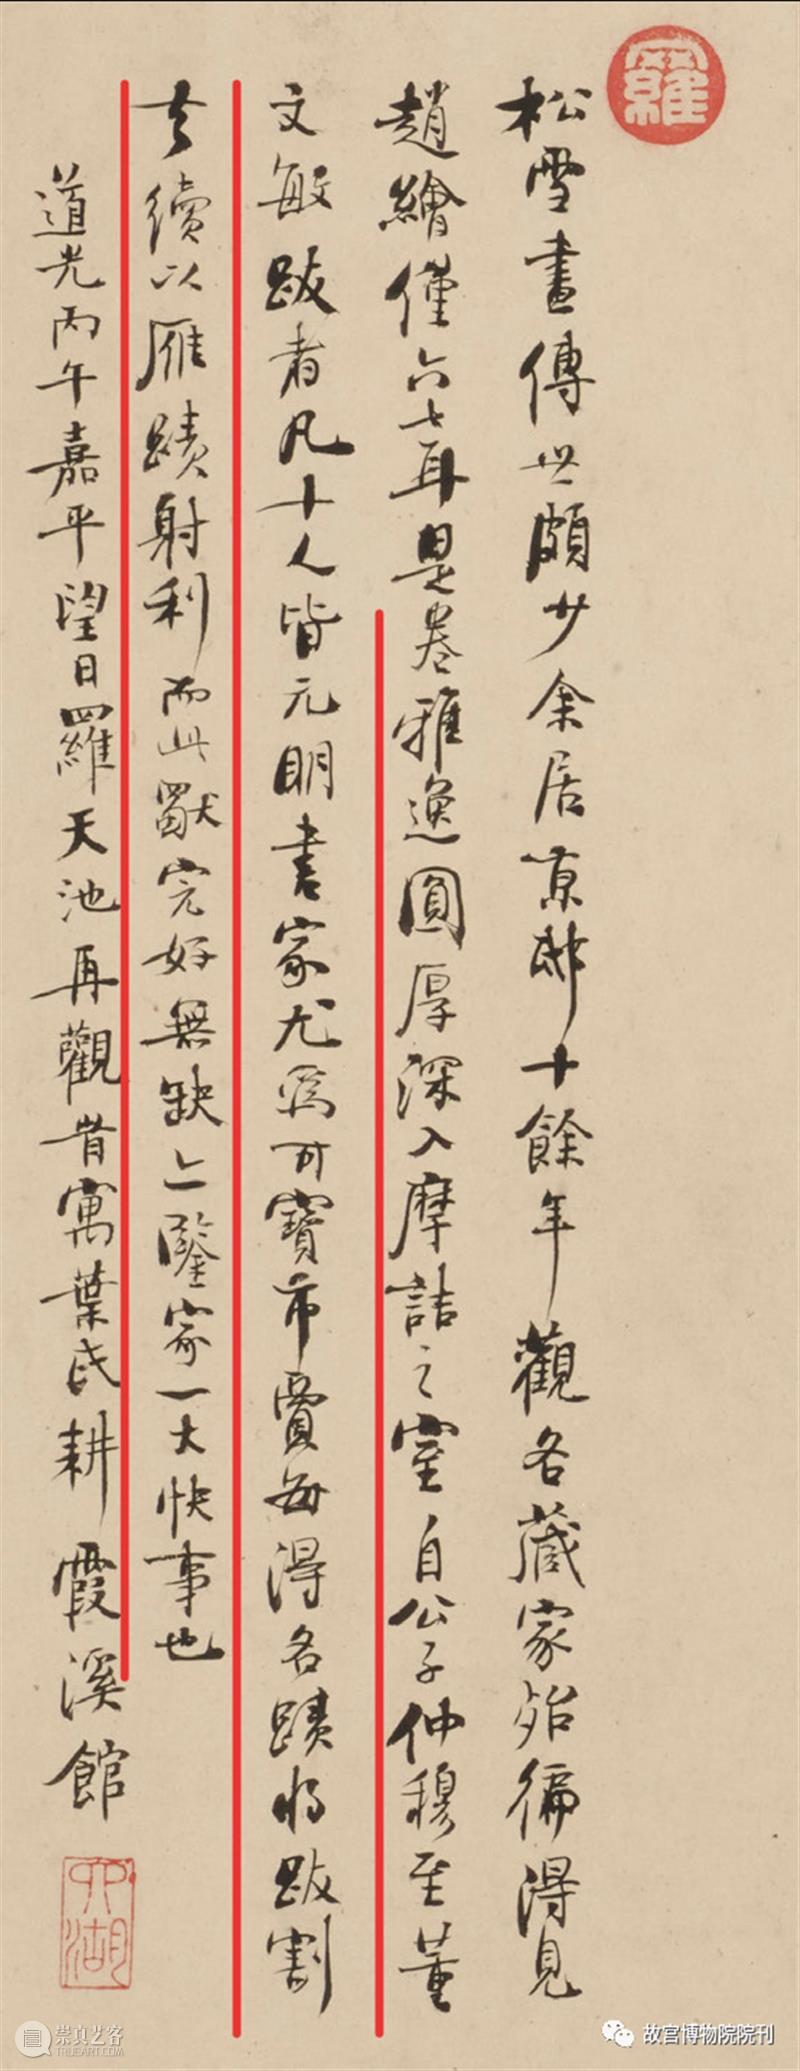 羅
松雪畫傳世頗少余居京邸十餘年觀各藏家殆徧得見
趙繪僅六七耳是卷雅逸圓厚深入摩詰之室自公子仲穆至董
文敏跋者凡十人皆元明書家尤爲可寶市賈每得名蹟將跋割
去續以雁蹟射利而此獨完好無缺亦鑒家一大快事也
道光丙午嘉平望日羅天池再觀昔寓葉氏耕霞溪館
六湖
崇真艺客
TRUEART.COM
故宫博物院院刊